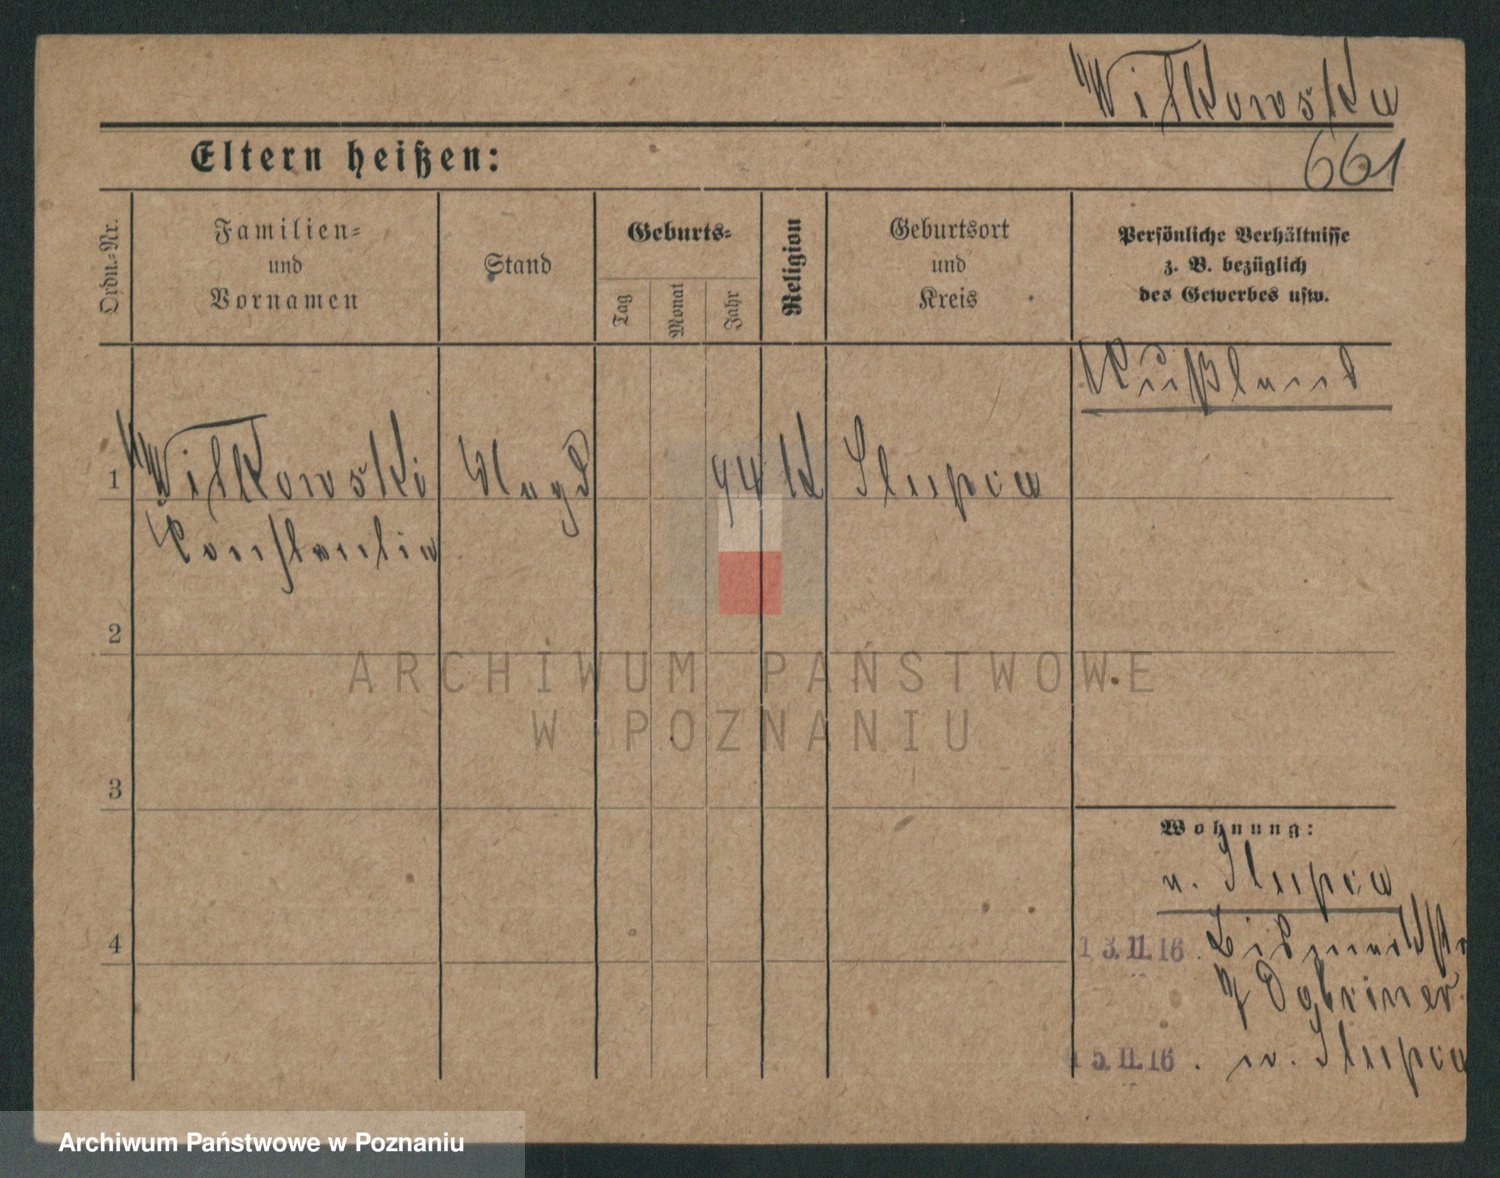 Witkowska
661
Eltern heißen:
Ordn.-Nr.
Familien-
und
Vornamen
Stand
Geburts-
Tag
Monat
Jahr
Religion
Geburtsort
und
Kreis
Persönliche Verhältnisse
z. B. bezüglich
des Gewerbes usw.
Rußland
1 Witkowski Magd 94 K Slupca
Konstantia
2
3
4
Wohnung:
n. Slupca
13.11.16. Bismarckstr
7 Dobriner
15.11.16. n. Slupca
ARCHIWUM PAŃSTWOWE
W POZNANIU
Archiwum Państwowe w Poznaniu